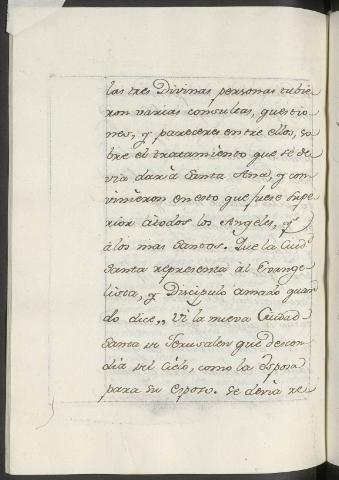 las tres Divinas personas tubie
ron varias consultas, questio
nes, y pareceres entre ellos, so
bre el tratamiento que se de
via dar a Santa Ana, y con
vinieron en esto que fuese Supe
rior à todos los Angeles, y
à los mas Santos. Que la Ciud.
Santa representa àl Evange
lista, y Discipulo amado quan
do dice,, Vi la nueva Ciudad
Santa de Jerusalen que descen
dia del Cielo, como la esposa
para su esposo. Se devia re